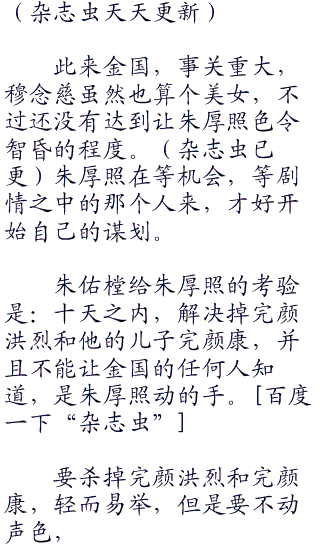 （杂志虫天天更新）
此来金国，事关重大，
穆念慈虽然也算个美女，不
过还没有达到让朱厚照色令
智昏的程度。（杂志虫已
更）朱厚照在等机会，等剧
情之中的那个人来，才好开
始自己的谋划。
朱佑樘给朱厚照的考验
是：十天之内，解决掉完颜
洪烈和他的儿子完颜康，并
且不能让金国的任何人知
道，是朱厚照动的手。[百度
一下“杂志虫”]
要杀掉完颜洪烈和完颜
康，轻而易举，但是要不动
声色，